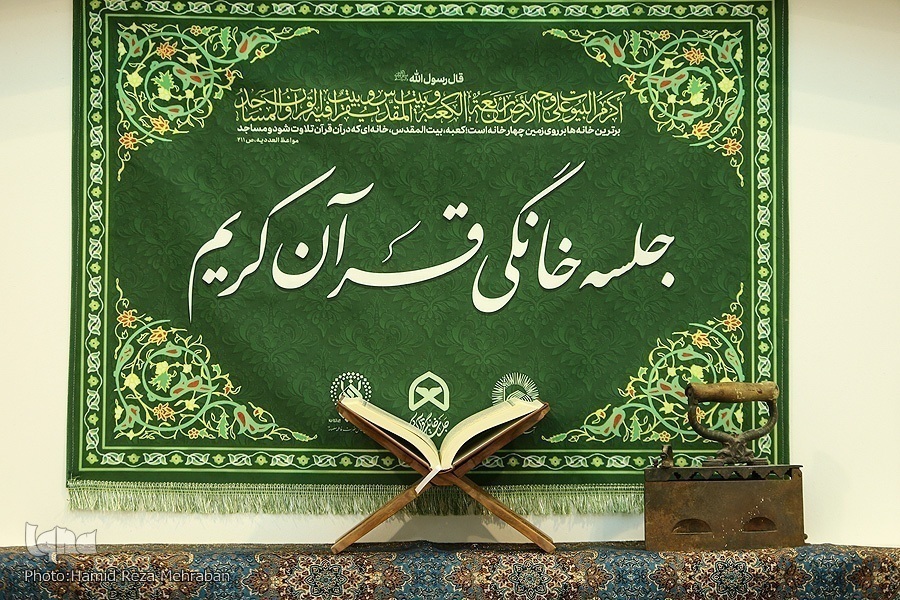 قال رسول الله ﷺ
اکرم البیوت علی وجه الارض اربعة: الکعبة و بیت المقدس و بیت یقرأ فیه القرآن و المساجد
برترین خانه ها بر روی زمین چهار خانه است: کعبه، بیت المقدس، خانه ای که در آن قرآن تلاوت شود و مساجد
مواعظ العددیه، ص ۲۱۱
جلسه خانگی قرآن کریم
iqna
Photo:Hamid Reza Mehraban